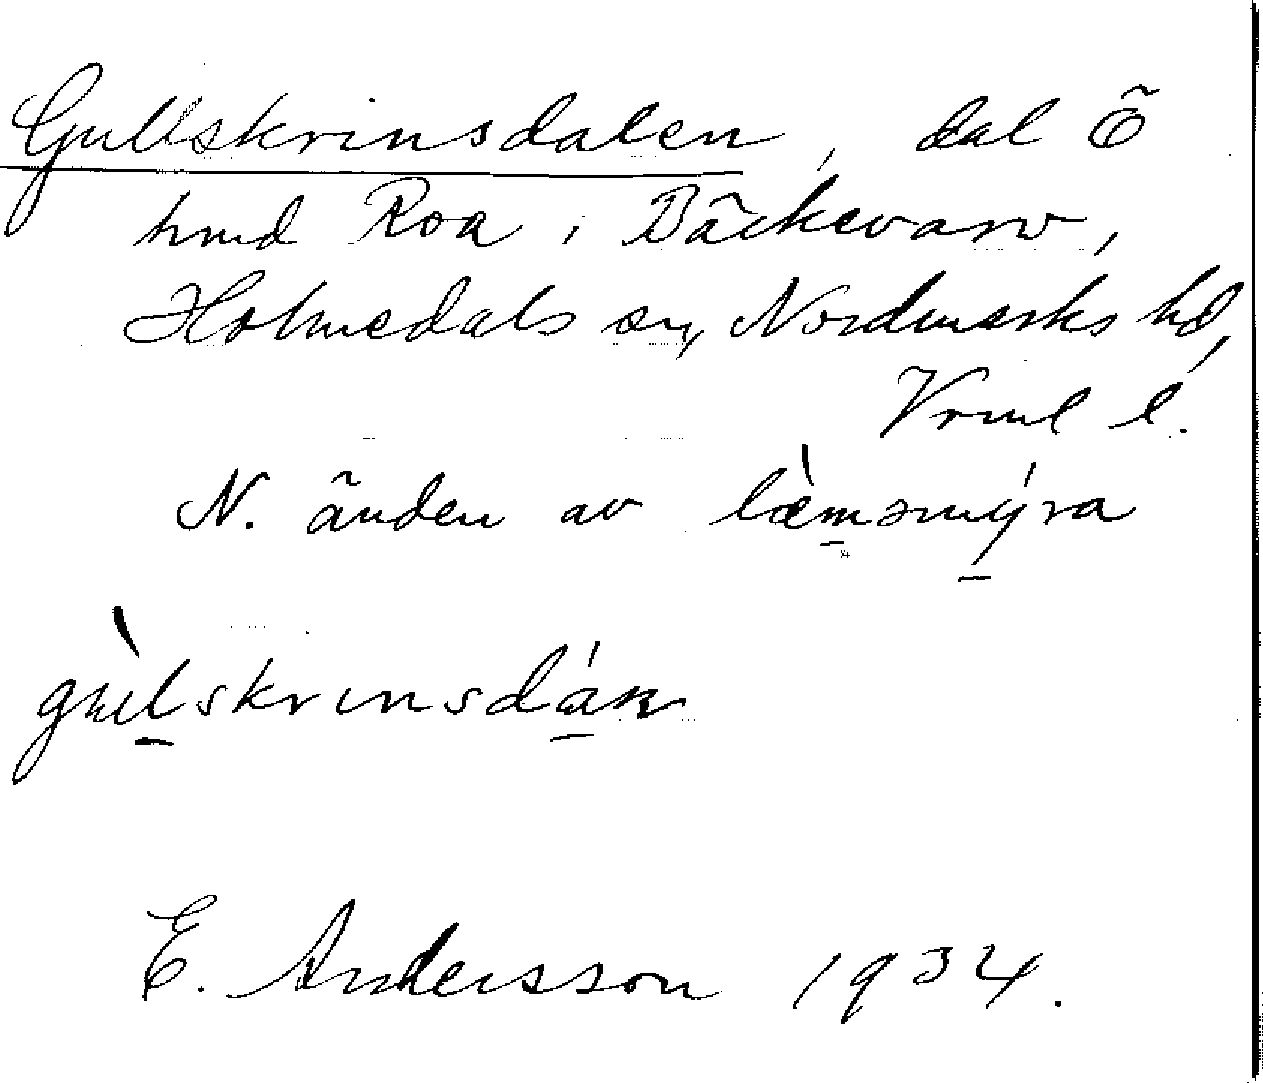 Gullskrinsdalen, dal Ö
hmd Roa i Bäckevarv,
Holmedals sn, Nordmarks hd,
Vrml l.
N. änden av læ̀məmýra
gùlskrinsdán
E. Andersson 1934.